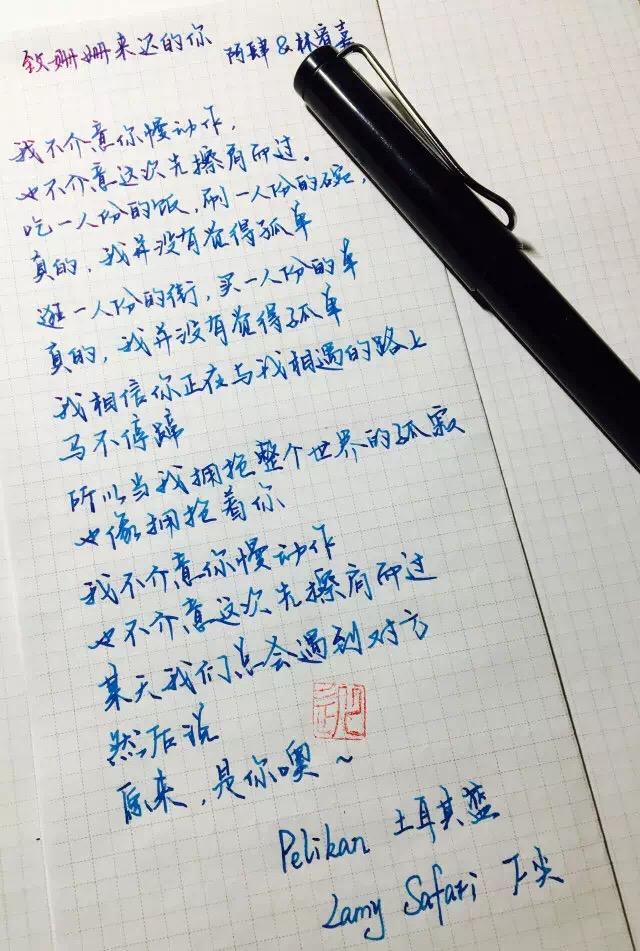 致姗姗来迟的你 阿肆&林宥嘉
我不介意你慢动作，
也不介意这次先擦肩而过。
吃一人份的饭，刷一人份的碗，
真的，我并没有觉得孤单
逛一人份的街，买一人份的单
真的，我并没有觉得孤单
我相信你正在与我相遇的路上
马不停蹄
所以当我拥抱整个世界的孤寂
也像拥抱着你
我不介意你慢动作
也不介意这次先擦肩而过
某天我们总会遇到对方
然后说
原来，是你噢~
Pelikan 土耳其蓝
Lamy Safari F尖